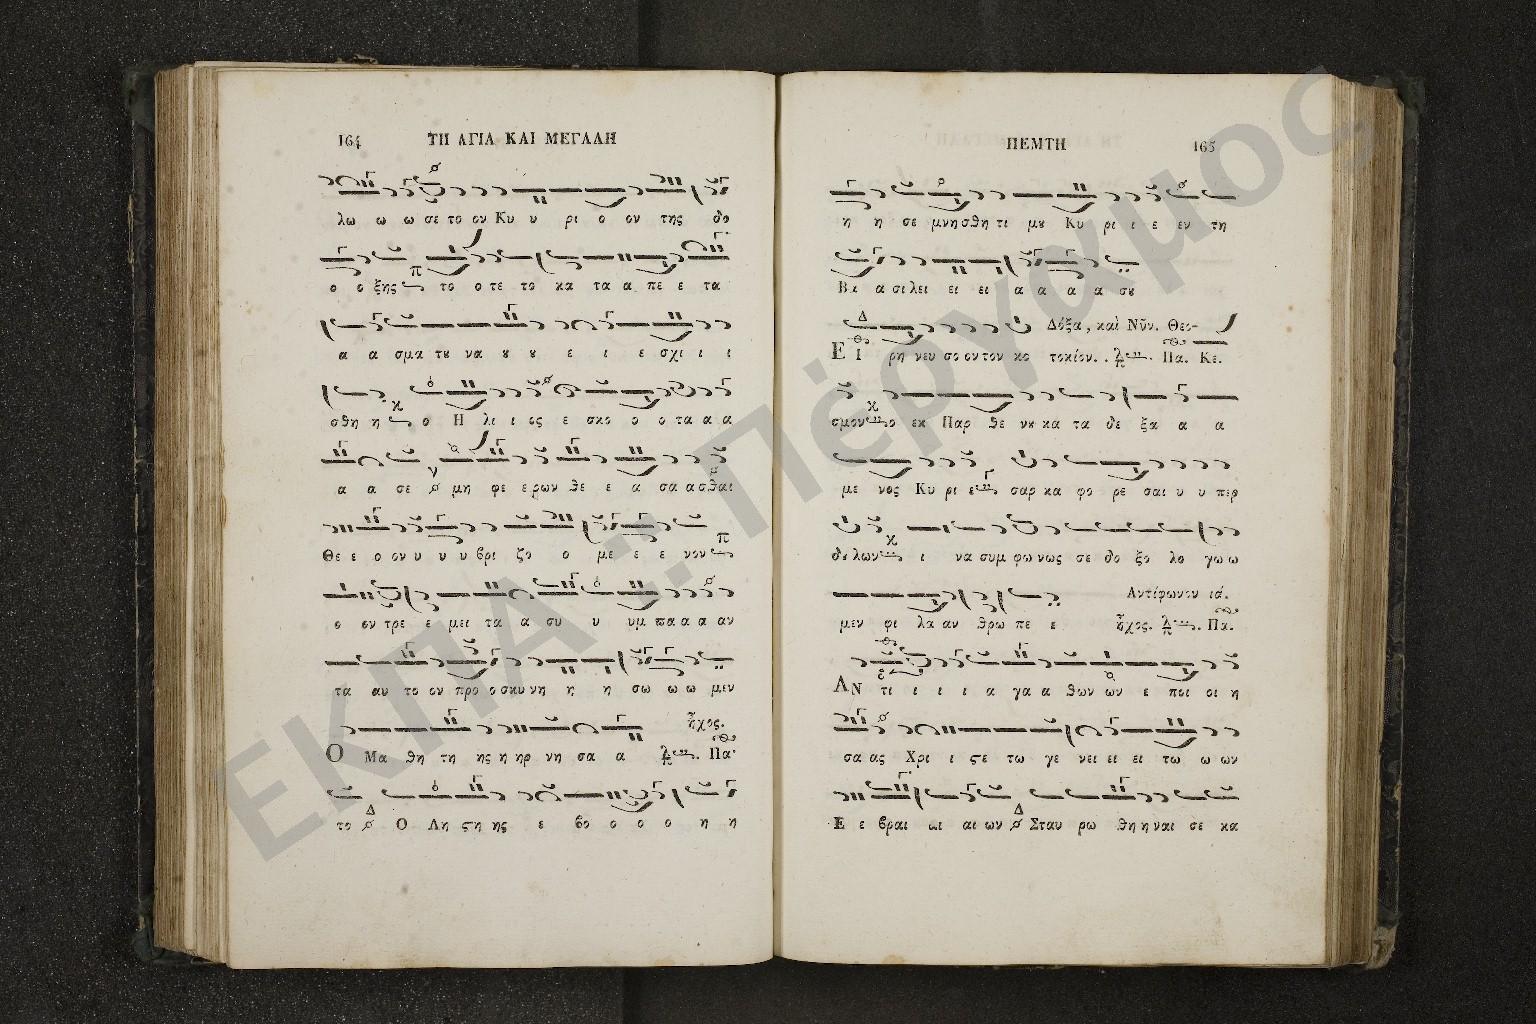 164 ΤΗ ΑΓΙΑ ΚΑΙ ΜΕΓΑΛΗ
λω ω ω σε το ον Κυ υ ρι ο ον της δο
ο ο ξης το ο τε το κα τα α πε ε τα
α α σμα του να ου ου ε ι ε σχι ι ι
σθη η ο Η λι ι ος ε σκο ο ο τα α α
α α σε μη φε ε ρων θε ε α σα α σθαι
Θε ε ο ον υ υ υ βρι ζο ο με ε ε νον
ο ον τρε ε μει τα α συ υ υμ πα α α αν
τα αυ το ον προ ο σκυ νη η η σω ω ω μεν
ἦχος.
Ο Μα θη τη ης η ηρ νη σα α Πα
το Ο Λη ϛη ης ε βο ο ο ο η η
ΠΕΜΤΗ 165
η η σε μνη σθη τι μου Κυ ρι ι ε εν τη
Βα α σι λει ει ει α α α α σου
Δόξα, καὶ Νῦν. Θεο-
Ε Ι ρη νευ σο ον τον κο τοκίον. Πα. Κε.
σμον ο εκ Παρ θε νου κα τα δε ξα α α
με νος Κυ ρι ε σαρ κα φο ρε σαι υ υ περ
δου λων ι να συμ φω νως σε δο ξο λο γω ω
Αντίφωνον ιά.
μεν φι λα αν θρω πε ε ἦχος. Πα.
ΑΝ τι ι ι ι α γα α θων ων ε ποι οι η
σα ας Χρι ι ϛε τω γε νει ει ει τω ω ων
Ε ε βραι αι αι ων Σταυ ρω θη η ναι σε κα
ΕΚΠΑ :: Πέργαμος